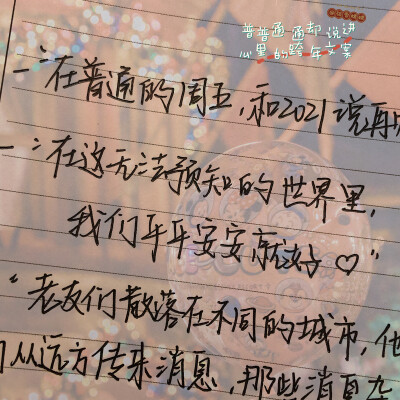 普普通通却说进
心里的跨年文案
一:“在普通的周五,和2021说再
一:“在这无法预知的世界里,
我们平平安安就好♡”
“老友们散落在不同的城市,他
们从远方传来消息,那些消息杂